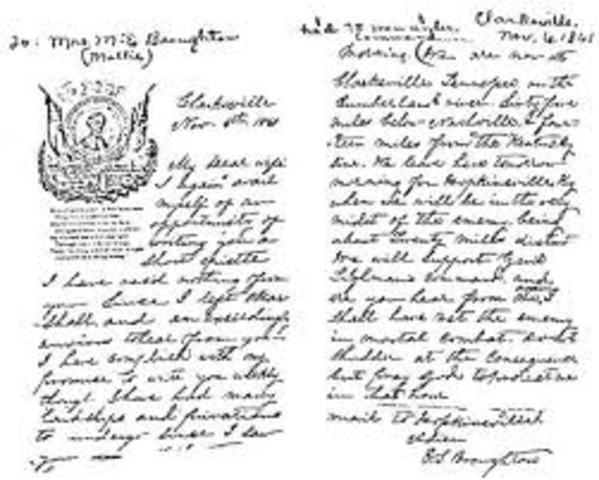 To: Mrs. M. E. Broughton
(Mollie)
Clarksville
Nov. 6th 1861
My Dear wife
I again avail
myself of an
opportunity of
writing you a
short epistle
I have recd nothing from
you since I left
and am exceedingly
anxious to hear from you
I have complied with my
promise to write you weekly
though I have had many
hardships and privations
to undergo since I saw
had 75 men under
command
Clarksville,
Nov. 6 1861
Morning (We are now at
Clarksville Tennessee on the
Cumberland river Sixty five
miles below Nashville & four-
teen miles from the Kentucky
line. We leave here tomorrow
morning for Hopkinsville Ky
when we will be in the very
midst of the enemy being
about Twenty Miles distant
We will support Genl
Tilghman's command and
ere you hear from me I
shall have met the enemy
in mortal combat. Dont
shudder at the consequence
but pray God to protect me
in that hour
mail to Hopkinsville
E S Broughton